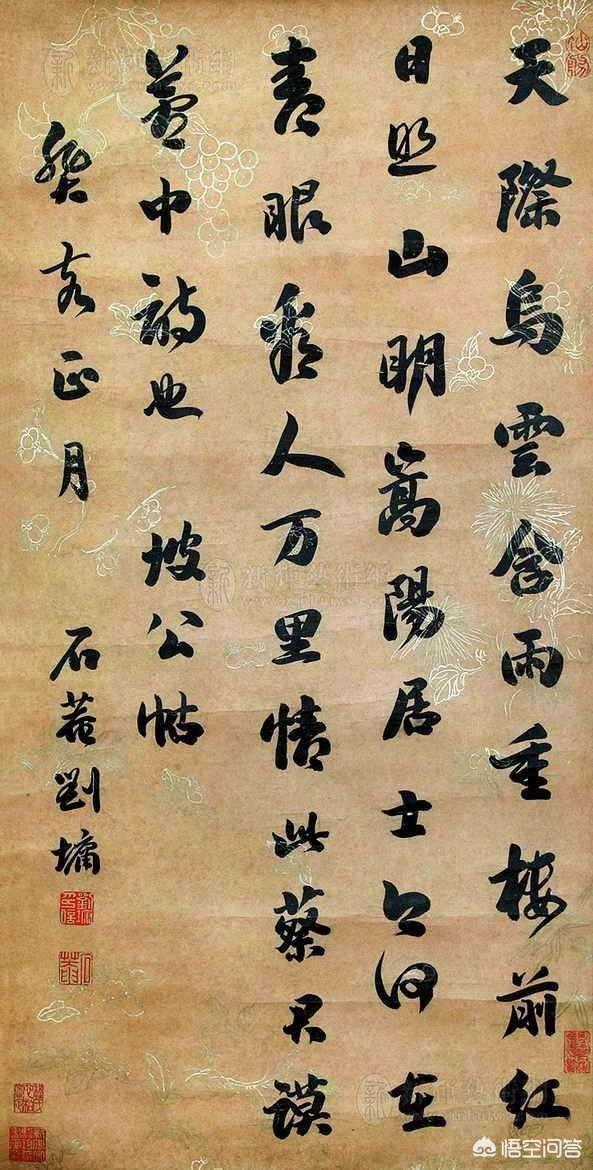 天際烏雲含雨重樓前紅
日照山明嵩陽居士今何在
青眼看人万里情此蔡君謨
夢中詩也 坡公帖
癸亥正月 石菴劉墉
悟空问答